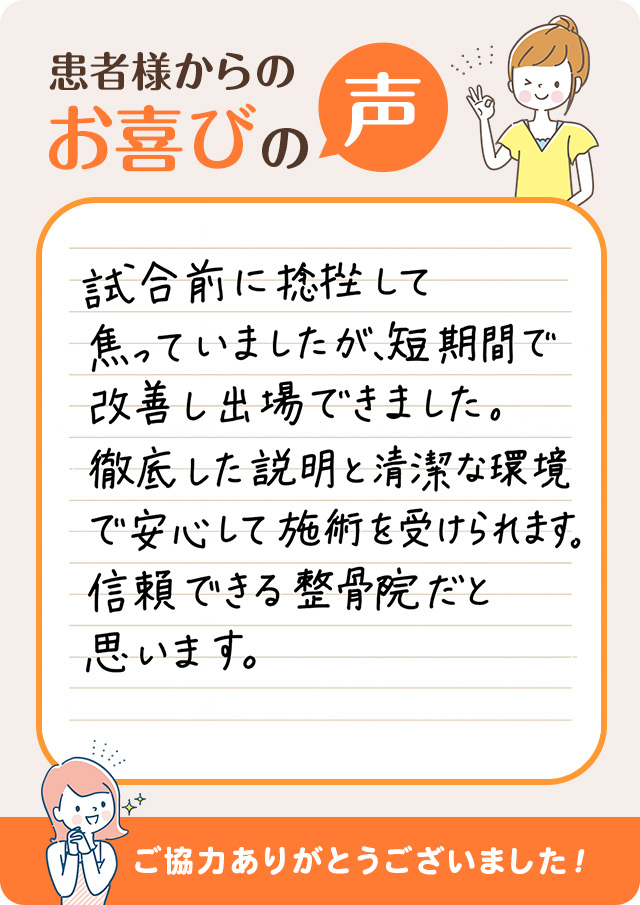 患者様からの
お喜びの声
試合前に捻挫して
焦っていましたが、短期間で
改善し出場できました。
徹底した説明と清潔な環境
で安心して施術を受けられます。
信頼できる整骨院だと
思います。
ご協力ありがとうございました!